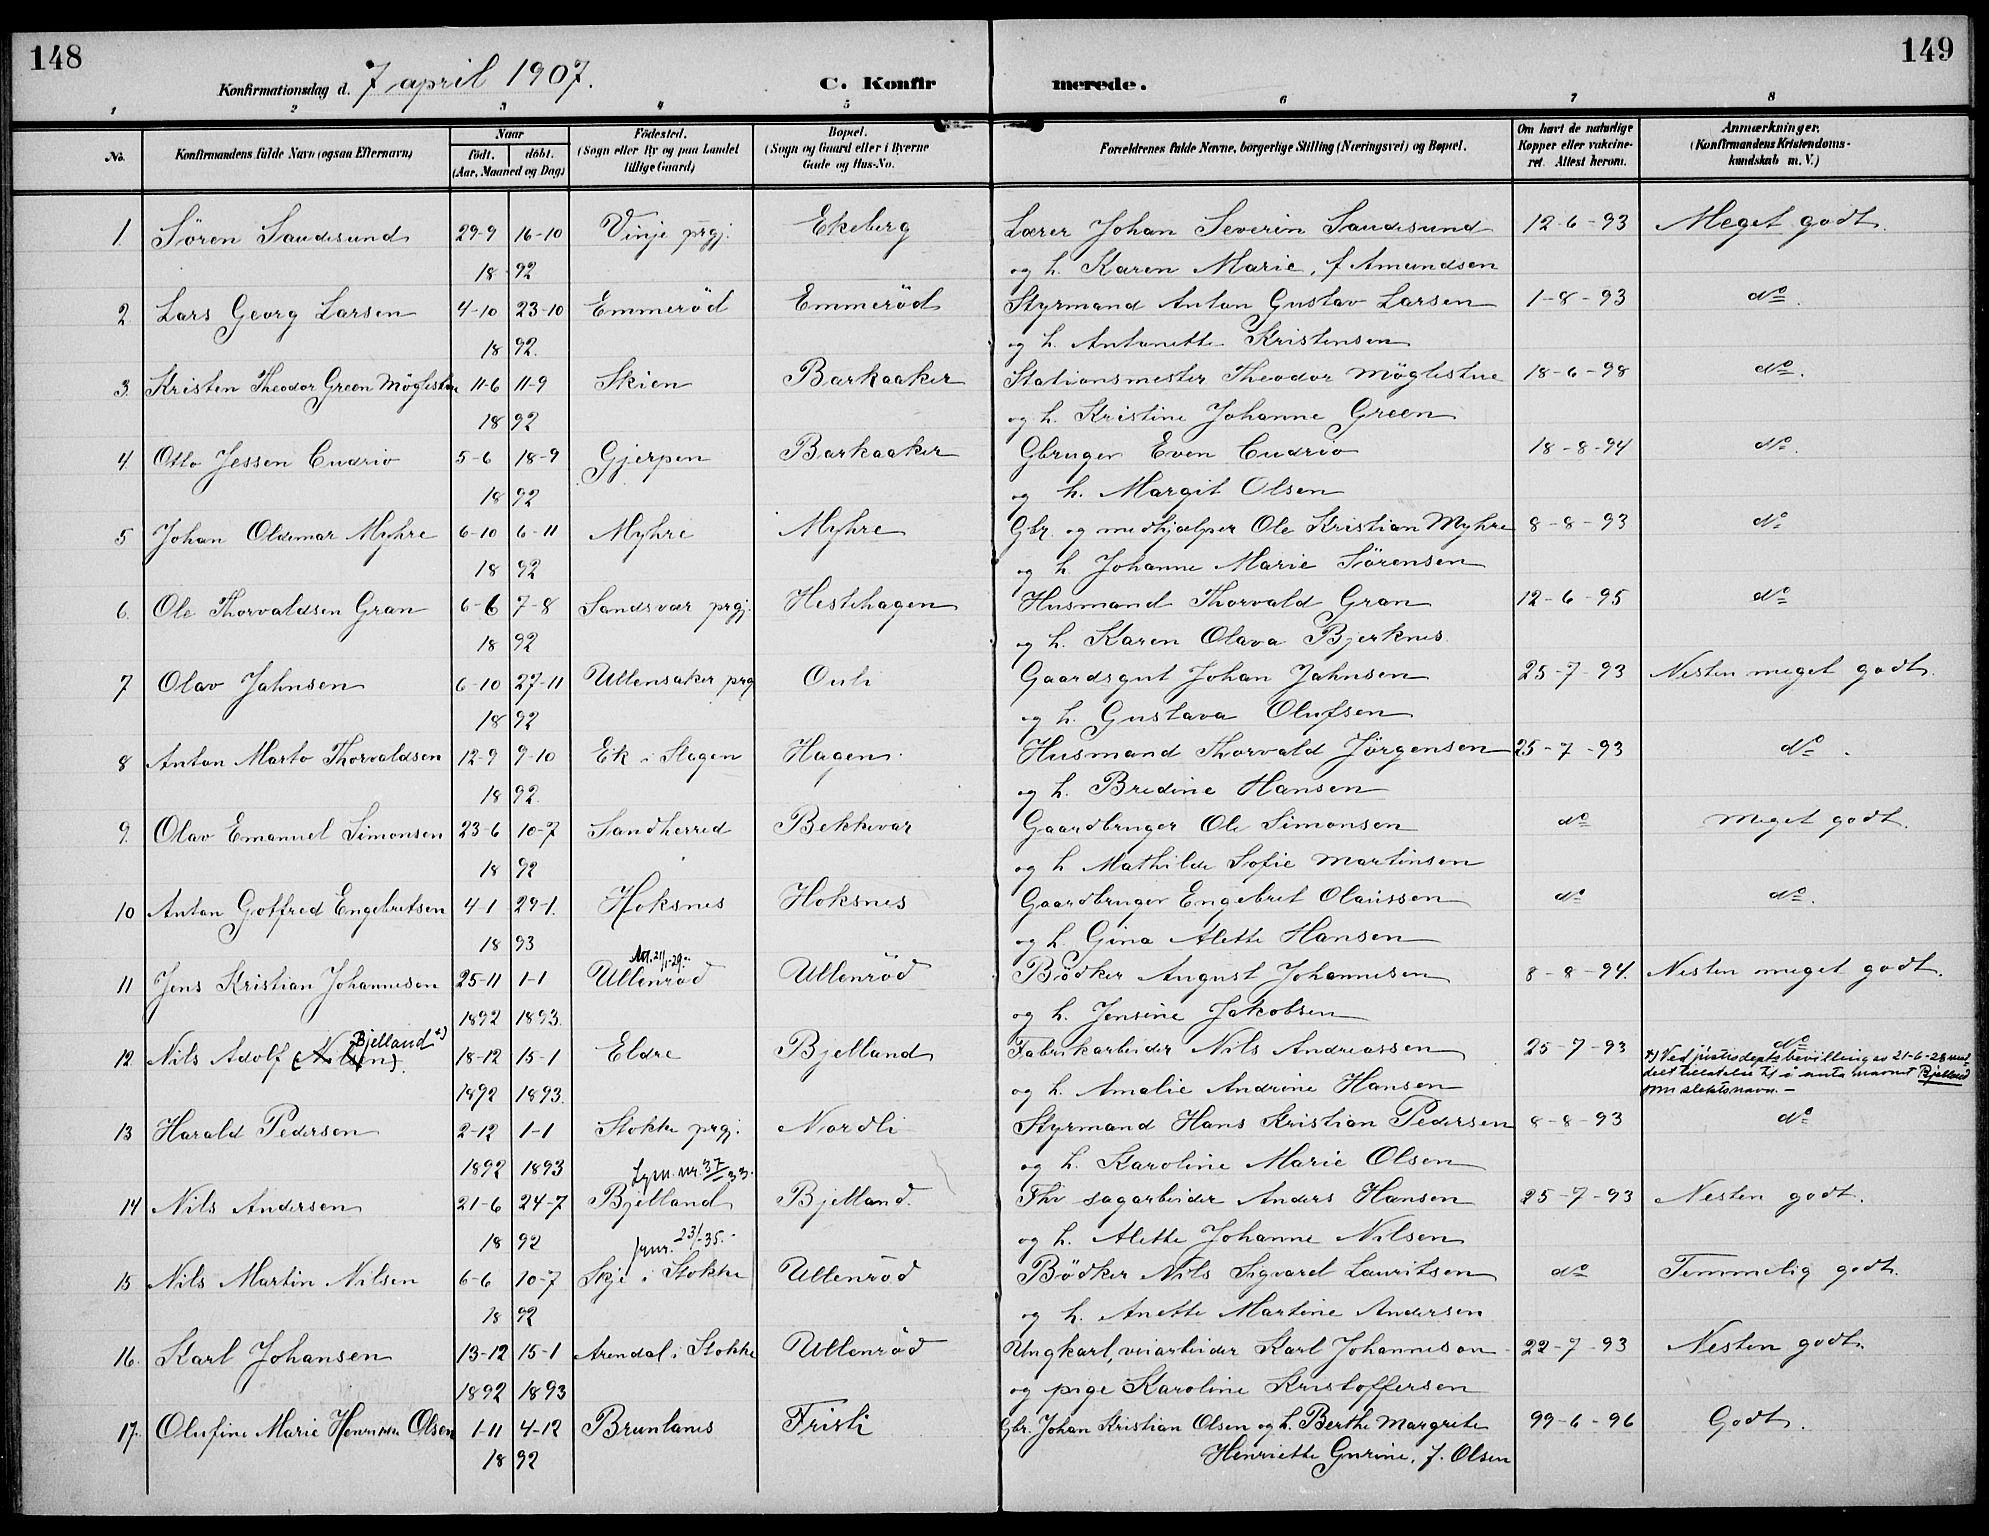 148
149
Konfirmationsdag d. 7 april 1907.
C. Konfir
merede.
1 2 3 4 5 6 7 8
No.
Konfirmandens fulde Navn (ogsaa Efternavn)
Naar
født. døbt.
(Aar, Maaned og Dag)
Fødested.
(Sogn eller By og paa Landet
tillige Gaard)
Bopæl.
(Sogn og Gaard eller i Byerne
Gade og Hus-No.
Forældrenes fulde Navne, borgerlige Stilling (Næringsvei) og Bopæl.
Om havt de naturlige
Kopper eller vakcine-
ret. Attest herom.
Anmærkninger.
(Konfirmandens Kristendoms-
kundskab m. V.)
1. Søren Sandesund 29-9 16-10 Vinje prgj. Ekeberg Lærer Johan Severin Sandesund 12-6-93 Meget godt.
18 92 og h. Karen Marie, f Amundsen
2 Lars Georg Larsen 4-10 23-10 Emmerød Emmerød Styrmand Anton Gustav Larsen 1-8-93 do.
18 92. og h. Antonette Kristensen
3. Kristen Theodor Green Møglestue 11-6 11-9 Skien Barkaaker Stationsmester Theodor Møglestue 18-6-98 do.
18 92 og h. Kristine Johanne Green
4. Otto Jessen Cudrio 5-6 18-9 Gjerpen Barkaaker Gbruger Even Cudrio 18-8-94 do.
18 92 og h. Margit Olsen
5 Johan Oldemar Myhre 6-10 6-11 Myhre Myhre Gbr. og medhjælper Ole Kristian Myhre 8-8-93 do
18 92 og h Johanne Marie Sørensen
6. Ole Thorvaldsen Gran 6-6 7-8 Sandsvær prgj. Hestehagen Husmand Thorvald Gran 12-6-95 do
18 92 og h. Karen Olava Bjerknes
7 Olav Jahnsen 6-10 27-11 Ullensaker prg Ouli Gaardsgut Johan Jahnsen 25-7-93 Nesten meget godt.
18 92 og h. Gustava Olufsen
8 Anton Marto Thorvaldsen 12-9 9-10 Ek i Slagen Hagen Husmand Thorvald Jørgensen 25-7-93 do.
18 92. og h. Bredine Hansen
9. Olav Emanuel Simonsen 23-6 10-7 Sandherred Bekkevar Gaardbruger Ole Simonsen do Meget godt.
18 92 og h Mathilde Sofie Martinsen
10 Anton Gotfred Engebretsen 4-1 29-1. Hoksnes Hoksnes Gaardbruger Engebret Olaussen do do.
18 93 og h. Gina Alette Hansen
21/1-29.
11 Jens Kristian Johannesen 25-11 1-1 Ullenrød Ullenrød Bødker August Johannesen 8-8-94. Nesten meget godt.
1892 1893. og h. Jensine Jakobsen
Bjelland x)
12. Nils Adolf (Nilsen). 18-12 15-1 Eldre Bjelland Fabrikarbeider Nils Andreassen 25-7-93 do
x) Ved justisdepts bevilling av 21-6-28 med
delt tillatelse til å anta navnet Bjelland
som slektsnavn. -
1892 1893. og h. Amalie Andrine Hansen
13 Harald Pedersen 2-12 1-1 Stokke prgj. Nordli Styrmand Hans Kristian Pedersen 8-8-93 do
1892 1893 og h. Karoline Marie Olsen
nr. 37/33.
14 Nils Andersen 21-6 24-7 Bjelland Bjelland. Fhv sagarbeider Anders Hansen 25-7-93 Nesten godt.
18 92 og h. Alette Johanne Nilsen
23/-35.
15 Nils Martin Nilsen 6-6 10-7 Skje i Stokke Ullenrød Bødker Nils Sigvard Lauritsen do Temmelig godt.
18 92 og h. Anette Martine Andersen
16. Karl Johansen 13-12 15-1 Arendal i Stokke Ullenrød Ungkarl, veiarbeider Karl Johannesen 22-7-93 Nesten godt.
1892 1893 og pige Karoline Kristoffersen
17. Olufine Marie Olsen 1-11 4-12 Brunlanes Fristi Gbr. Johan Kristian Olsen og h. Berthe Margrete 99-6-96 Godt.
18 92 Henriette Gurine, f. Olsen